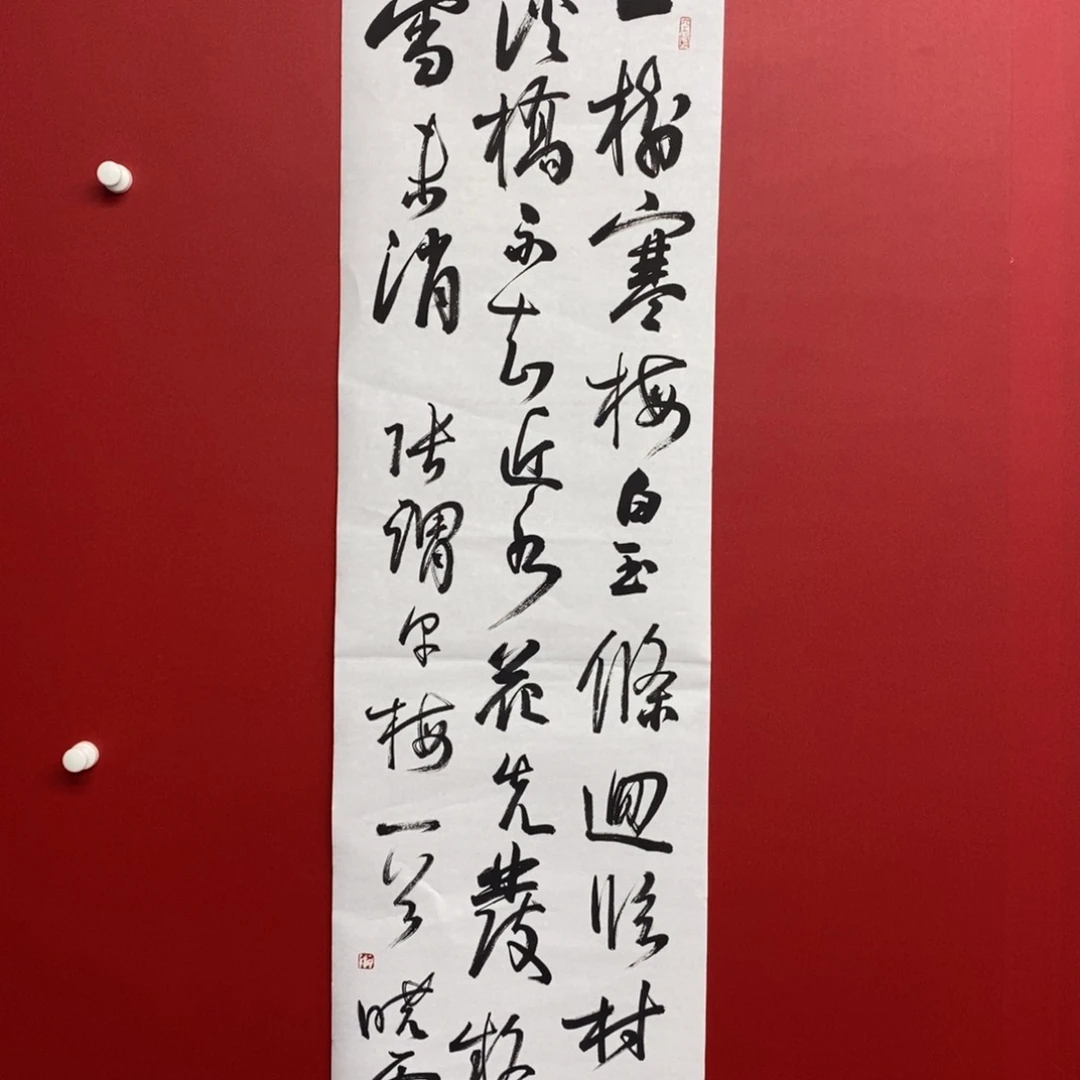 一樹寒梅白玉條迴臨村
溪橋不知近水花先發疑
雪未消 張謂早梅一首 曉